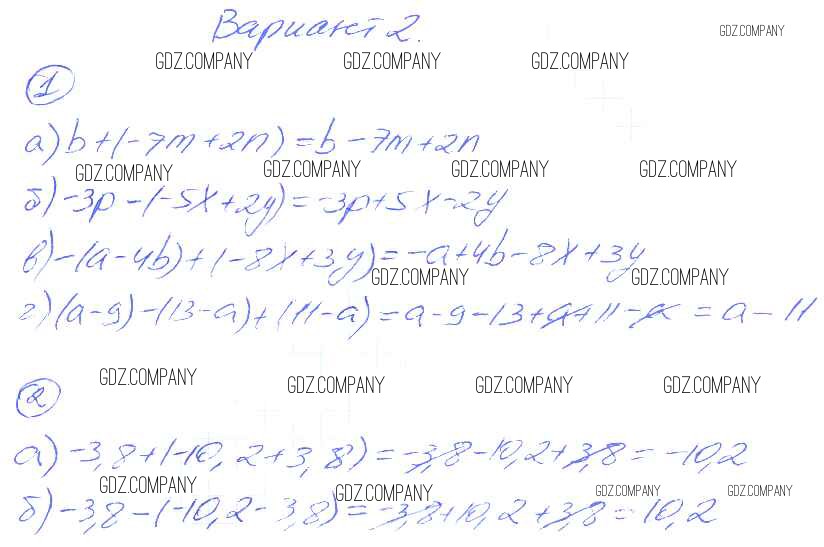 Вариант 2.
GDZ.COMPANY
GDZ.COMPANY GDZ.COMPANY GDZ.COMPANY
1
а) b+(-7m+2n)=b-7m+2n
GDZ.COMPANY GDZ.COMPANY GDZ.COMPANY GDZ.COMPANY
б) -3p-(-5x+2y)=-3p+5x-2y
в) -(a-4b)+(-8x+3y)=-a+4b-8x+3y
GDZ.COMPANY GDZ.COMPANY
г) (a-9)-(13-a)+(11-a)=a-9-13+a+11-a=a-11
GDZ.COMPANY GDZ.COMPANY GDZ.COMPANY GDZ.COMPANY
2
а) -3,8+(-10,2+3,8)=-3,8-10,2+3,8=-10,2
GDZ.COMPANY GDZ.COMPANY GDZ.COMPANY GDZ.COMPANY
б) -3,8-(-10,2-3,8)=-3,8+10,2+3,8=10,2